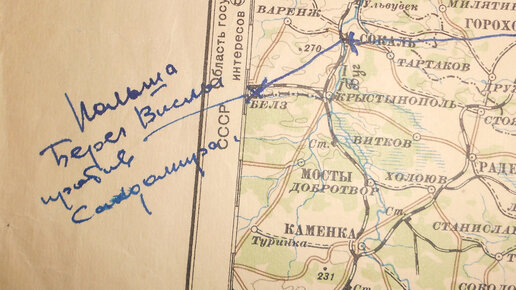 Польша
Берег Вислы
против
Сандомира.
область госуд
интересов
СССР
ВАРЕНЖ
Тудвубден
МИЛЯТИН
ГОРОХО
270
СОКАЛЬ
ТАРТАКОВ
Буг
БЕЛЗ
КРЫСТЫНОПОЛЬ
ДРУ
СТОЯ
Ст.
ВИТКОВ
МОСТЫ
ДОБРОТВОР
ХОЛОЮВ
РАДЕ
Ст.
КАМЕНКА
Туринка
СТАНИСЛА
231
Ст.
СОКОЛО